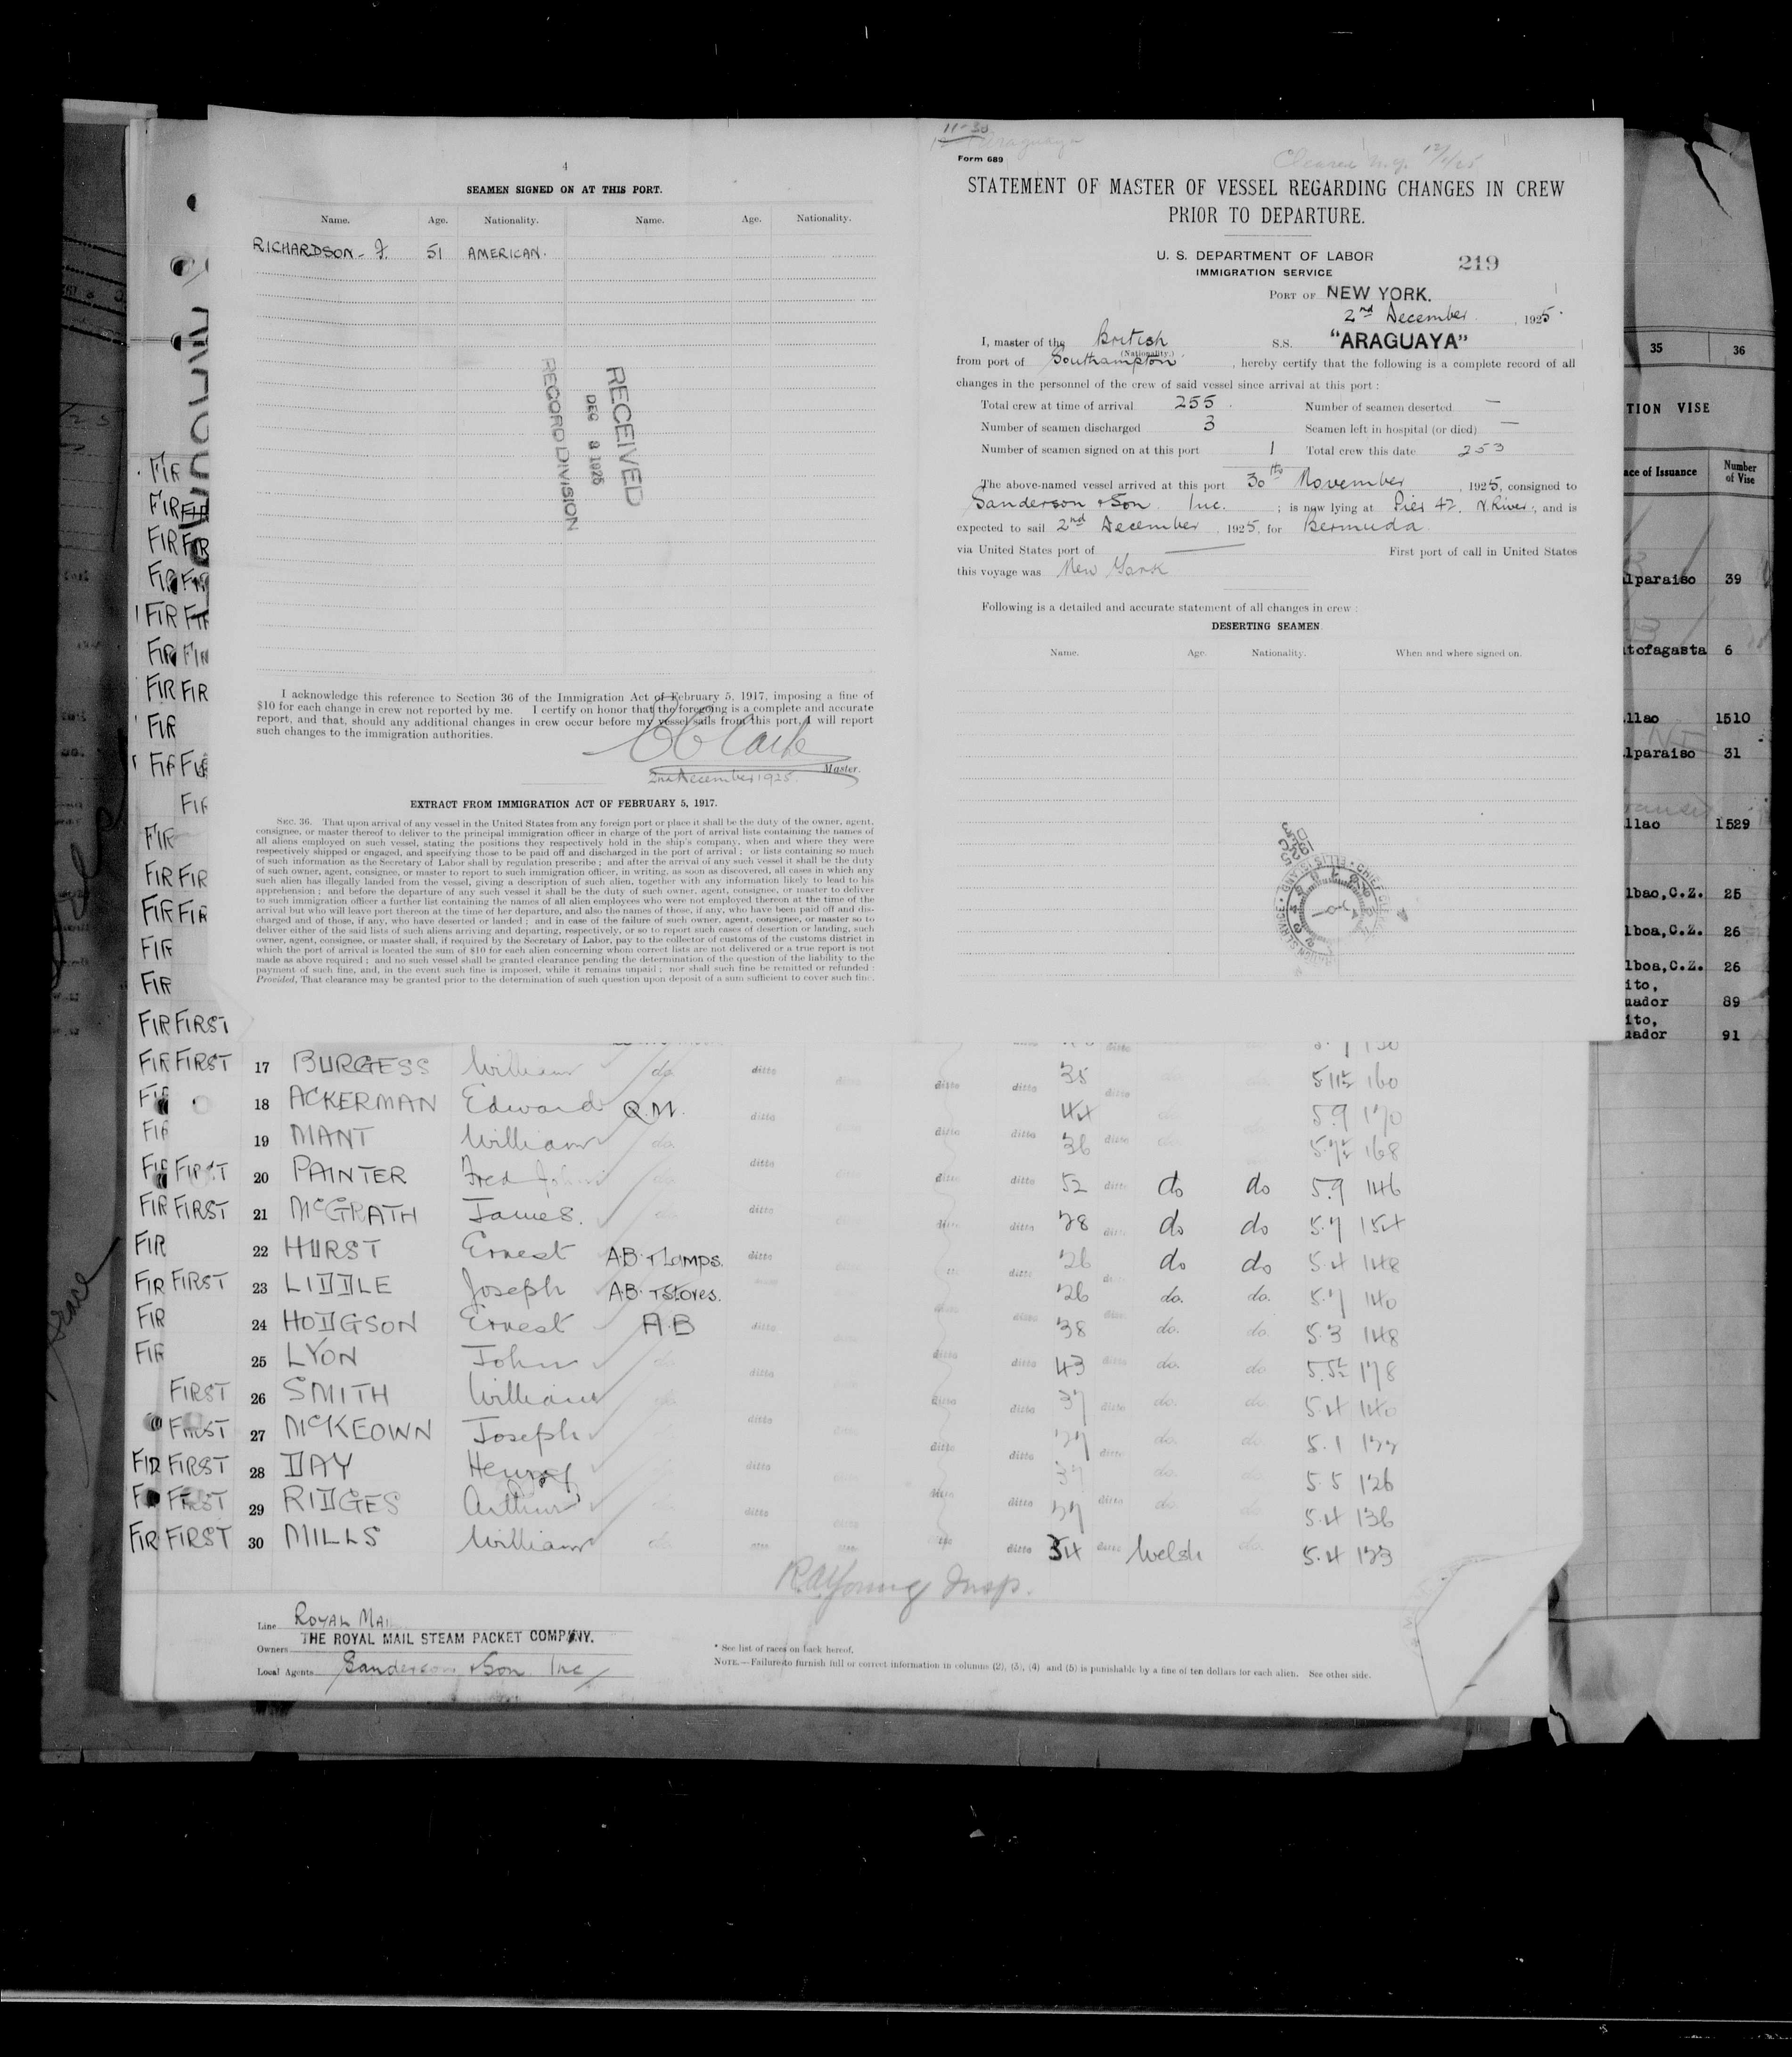 4
SEAMEN SIGNED ON AT THIS PORT.
Name. Age. Nationality. Name. Age. Nationality.
RICHARDSON - F. 51 AMERICAN.
RECEIVED
DEC 8 1925
RECORD DIVISION
I acknowledge this reference to Section 36 of the Immigration Act of February 5, 1917, imposing a fine of
$10 for each change in crew not reported by me. I certify on honor that the foregoing is a complete and accurate
report, and that, should any additional changes in crew occur before my vessel sails from this port, I will report
such changes to the immigration authorities.
Master.
2nd December 1925.
EXTRACT FROM IMMIGRATION ACT OF FEBRUARY 5, 1917.
SEC. 36. That upon arrival of any vessel in the United States from any foreign port or place it shall be the duty of the owner, agent,
consignee, or master thereof to deliver to the principal immigration officer in charge of the port of arrival lists containing the names of
all aliens employed on such vessel, stating the positions they respectively hold in the ship's company, when and where they were
respectively shipped or engaged, and specifying those to be paid off and discharged in the port of arrival; or lists containing so much
of such information as the Secretary of Labor shall by regulation prescribe; and after the arrival of any such vessel it shall be the duty
of such owner, agent, consignee, or master to report to such immigration officer, in writing, as soon as discovered, all cases in which any
such alien has illegally landed from the vessel, giving a description of such alien, together with any information likely to lead to his
apprehension; and before the departure of any such vessel it shall be the duty of such owner, agent, consignee, or master to deliver
to such immigration officer a further list containing the names of all alien employees who were not employed thereon at the time of the
arrival but who will leave port thereon at the time of her departure, and also the names of those, if any, who have been paid off and dis-
charged and of those, if any, who have deserted or landed; and in case of the failure of such owner, agent, consignee, or master so to
deliver either of the said lists of such aliens arriving and departing, respectively, or so to report such cases of desertion or landing, such
owner, agent, consignee, or master, shall, if required by the Secretary of Labor, pay to the collector of customs of the customs district in
which the port of arrival is located the sum of $10 for each alien concerning whom correct lists are not delivered or a true report is not
made as above required; and no such vessel shall be granted clearance pending the determination of the question of the liability to the
payment of such fine, and, in the event such fine is imposed, while it remains unpaid; nor shall such fine be remitted or refunded:
Provided, That clearance may be granted prior to the determination of such question upon deposit of a sum sufficient to cover such fine.
11-30
Araguaya
Form 689
STATEMENT OF MASTER OF VESSEL REGARDING CHANGES IN CREW
PRIOR TO DEPARTURE.
U. S. DEPARTMENT OF LABOR
IMMIGRATION SERVICE
219
PORT OF NEW YORK.
2nd December, 1925.
I, master of the British S.S. "ARAGUAYA"
(Nationality.)
from port of Southampton, hereby certify that the following is a complete record of all
changes in the personnel of the crew of said vessel since arrival at this port:
Total crew at time of arrival 255. Number of seamen deserted —
Number of seamen discharged 3 Seamen left in hospital (or died) —
Number of seamen signed on at this port 1 Total crew this date 253
The above-named vessel arrived at this port 30th November, 1925, consigned to
Sanderson & Son Inc.; is now lying at Pier 42. N. River, and is
expected to sail 2nd December, 1925, for Bermuda.
via United States port of — First port of call in United States
this voyage was New York
Following is a detailed and accurate statement of all changes in crew:
DESERTING SEAMEN.
Name. Age. Nationality. When and where signed on.
35 36
TION VISE
ace of Issuance Number of Vise
lparaiso 39
tofagasta 6
llao 1510
lparaiso 31
llao 1529
lbao, C.Z. 25
lboa, C.Z. 26
lboa, C.Z. 26
ito,
uador 89
ito,
uador 91
FIRST
FIRST 17 BURGESS William do ditto ditto ditto 35 ditto 5 11½ 160
18 ACKERMAN Edward Q.M. ditto ditto ditto 44 5.9 170
19 MANT William do. ditto ditto 36 ditto 5.7½ 168
FIRST 20 PAINTER Fred John do ditto ditto ditto 52 ditto do do 5.9 146
FIRST 21 McGRATH James. do ditto ditto ditto 28 ditto do do 5.7 154
22 HURST Ernest A.B. + Lamps. ditto ditto 26 do do 5.4 148
FIRST 23 LIDDLE Joseph A.B. + Stores. ditto 26 do. do. 5.7 140
24 HODGSON Ernest A.B ditto ditto 38 ditto do. do. 5.3 148
25 LYON John do ditto ditto 43 ditto do. do 5.5½ 178
FIRST 26 SMITH William do ditto ditto ditto 37 ditto do. do. 5.4 140
FIRST 27 McKEOWN Joseph ditto ditto 27 ditto do. do. 5.1 122
FIRST 28 DAY Henry do ditto ditto 37 do. do. 5.5 126
FIRST 29 RIDGES Arthur ditto ditto ditto 27 ditto do. do. 5.4 136
FIRST 30 MILLS William do. ditto ditto 34 ditto Welsh do. 5.4 123
R. A. Young Insp.
Line ROYAL MAIL
Owners THE ROYAL MAIL STEAM PACKET COMPANY.
Local Agents Sanderson & Son Inc
* See list of races on back hereof.
NOTE.—Failure to furnish full or correct information in columns (2), (3), (4) and (5) is punishable by a fine of ten dollars for each alien. See other side.